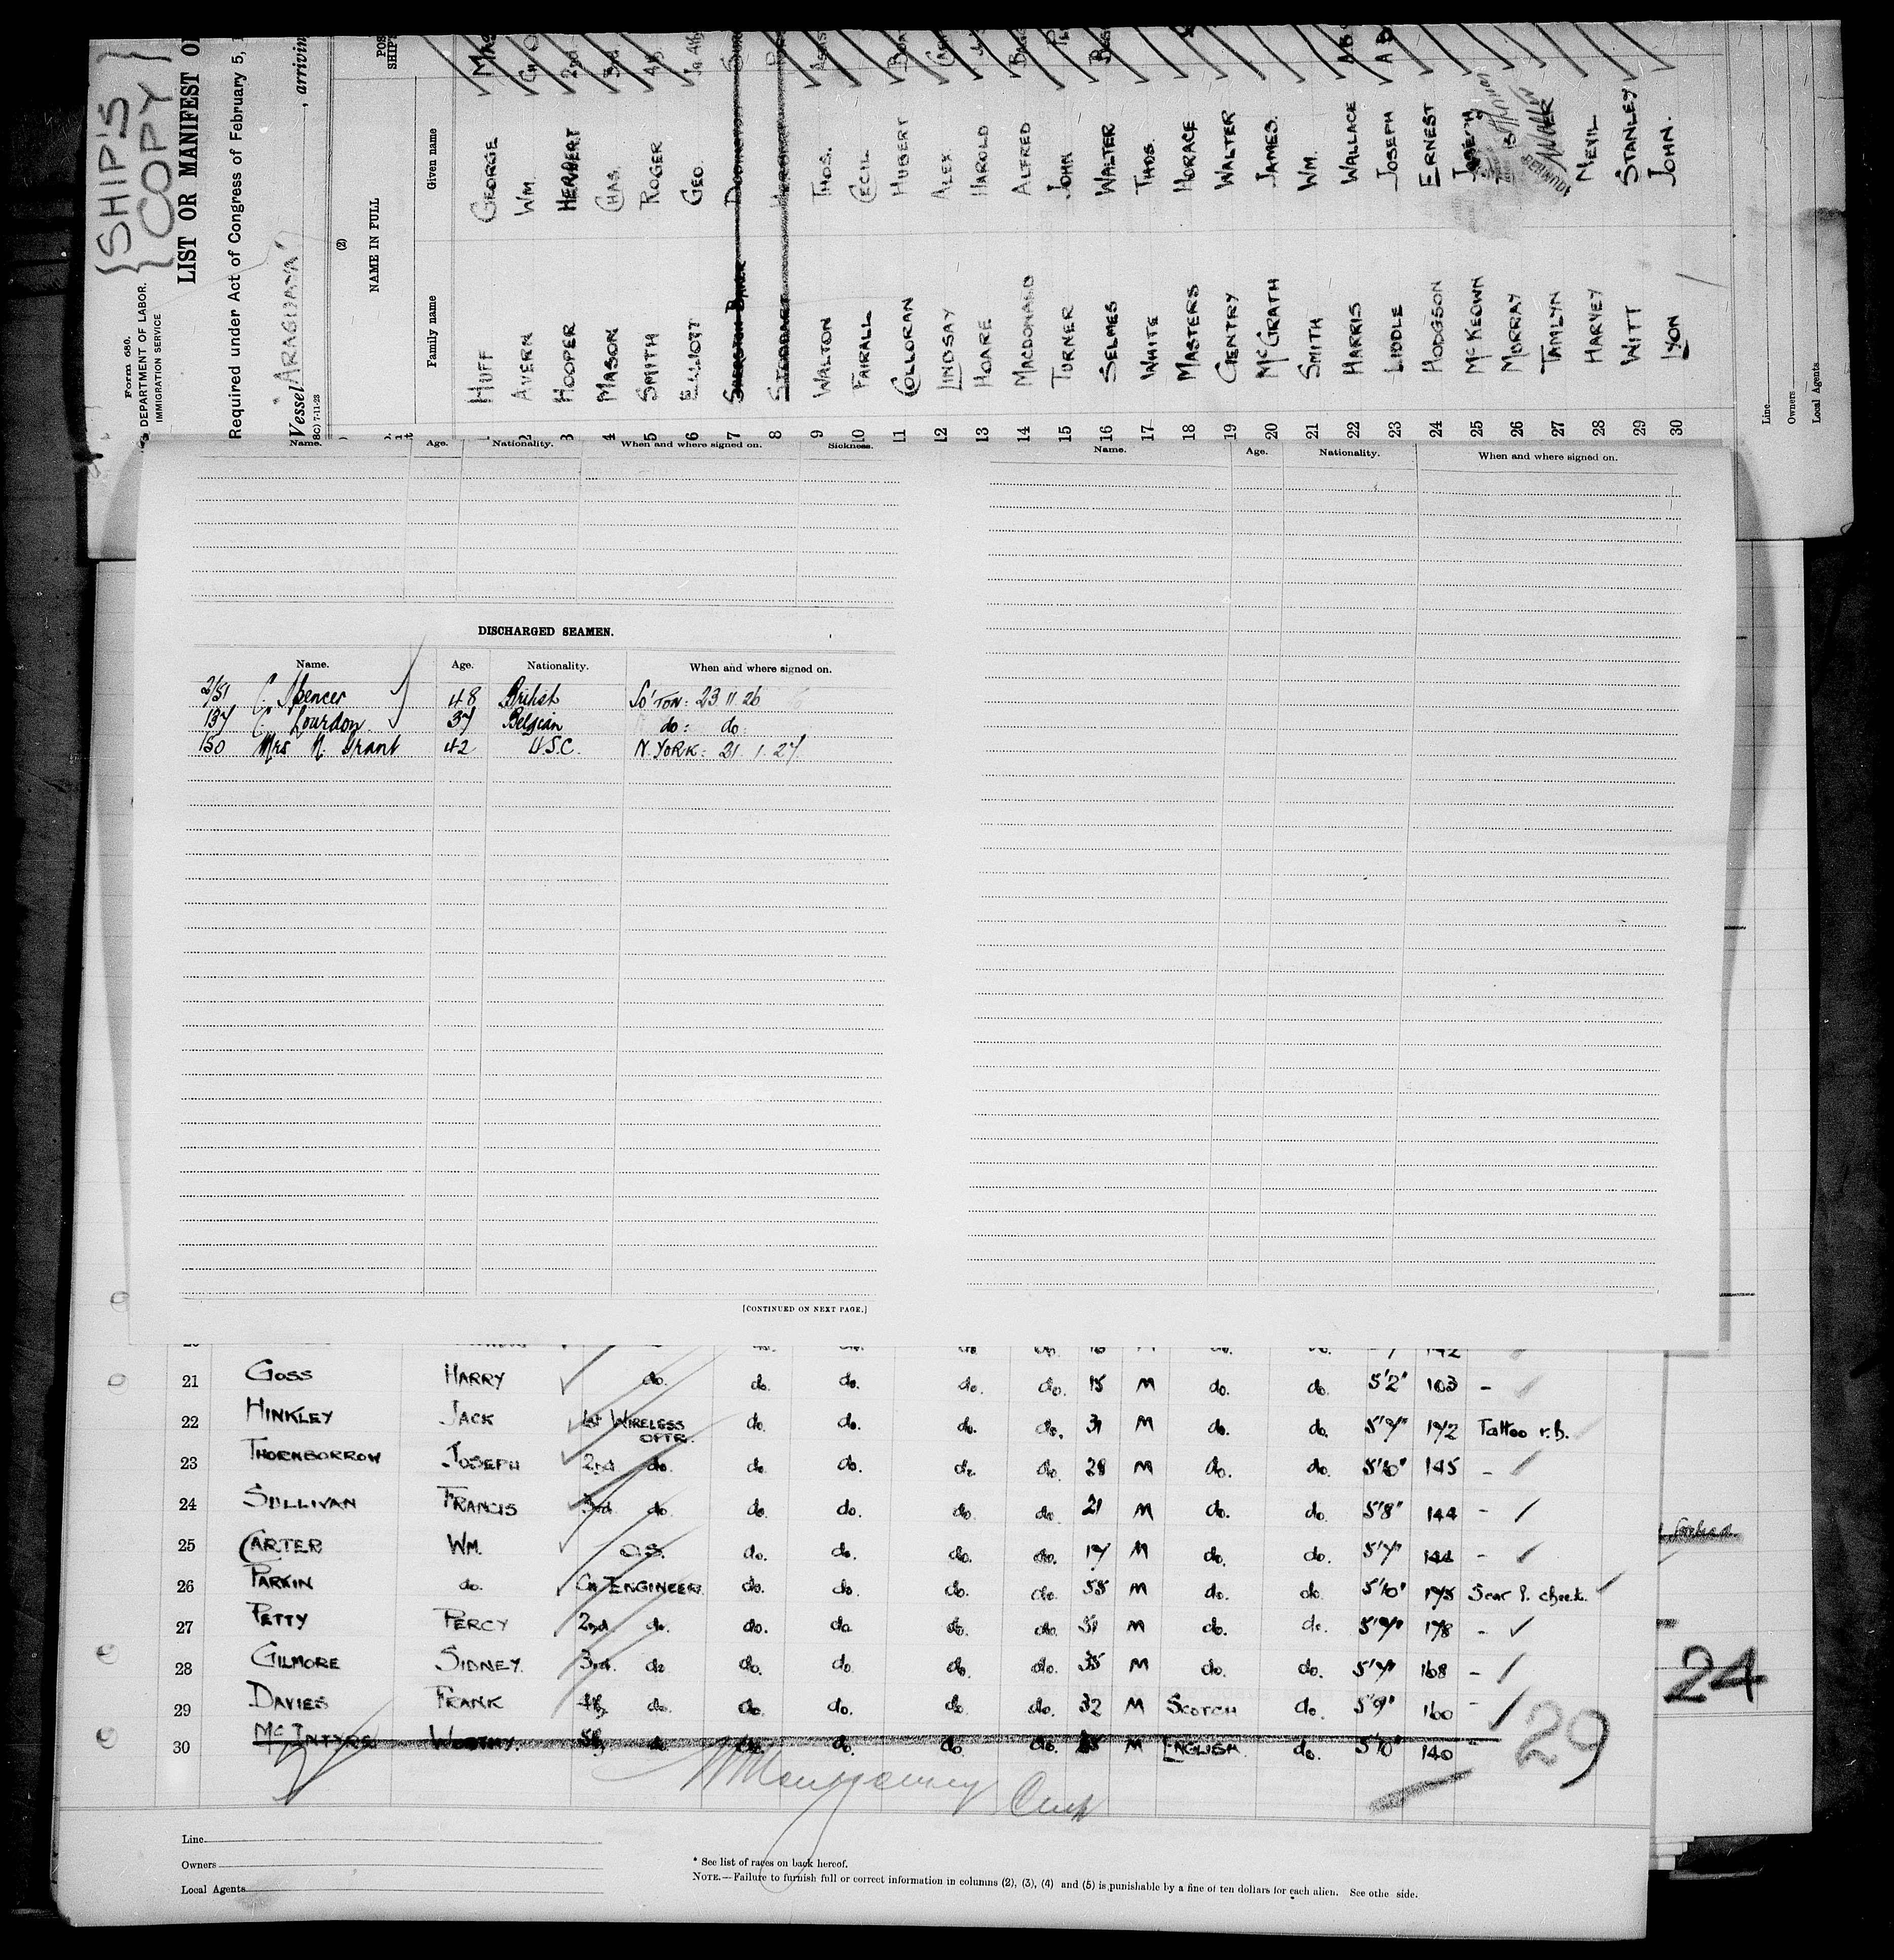 {SHIP'S COPY}
Form 680.
DEPARTMENT OF LABOR.
IMMIGRATION SERVICE
LIST OR MANIFEST O
Required under Act of Congress of February 5, 1
Vessel "ARAGUAYA" , arriving
(2)
NAME IN FULL
Family name Given name
1 HUFF GEORGE
2 AVERN WM.
3 HOOPER HERBERT
4 MASON CHAS.
5 SMITH ROGER
6 ELLIOTT GEO.
7
8 STODDART
9 WALTON THOS.
10 FAIRALL CECIL
11 COLLORAN HUBERT
12 LINDSAY ALEX.
13 HOARE HAROLD
14 MACDONALD ALFRED
15 TURNER JOHN
16 SELMES WALTER
17 WHITE THOS.
18 MASTERS HORACE
19 GENTRY WALTER
20 McGRATH JAMES.
21 SMITH WM.
22 HARRIS WALLACE
23 LIDDLE JOSEPH
24 HODGSON ERNEST
25 McKEOWN JOSEPH
26 MURRAY
27 TAMLYN
28 HARVEY NEVIL
29 WITT STANLEY
30 LYON JOHN.
Line
Owners
Local Agents
Name. Age. Nationality. When and where signed on. Sickness. Name. Age. Nationality. When and where signed on.
DISCHARGED SEAMEN.
Name. Age. Nationality. When and where signed on.
2/51 C. Spencer 48 British So'TON: 23 11 26
137 C. Lourdon 37 Belgian do: do:
150 Mrs N. Grant 42 U.S.C. N. YORK: 21. 1. 27.
[CONTINUED ON NEXT PAGE.]
21 GOSS HARRY do. do. do. do. do. 15 M do. do. 5'2" 103 -
22 HINKLEY JACK 1st WIRELESS OPTR. do. do. do. do. 31 M do. do. 5'7" 172 Tattoo r.h.
23 THORNBORROW JOSEPH 2nd do. do. do. do. do. 28 M do. do. 5'10" 145 -
24 SULLIVAN FRANCIS 3rd do. do. do. do. do. 21 M do. do. 5'8" 144 -
25 CARTER WM. O.S. do. do. do. do. 17 M do. do. 5'7" 144 -
26 PARKIN do. CH ENGINEER. do. do. do. do. 55 M do. do. 5'10" 175 Scar l. cheek.
27 PETTY PERCY 2nd do. do. do. do. do. 51 M do. do. 5'7" 178 -
28 GILMORE SIDNEY. 3rd. do. do. do. do. do. 35 M do. do. 5'7" 168 -
29 DAVIES FRANK 4th do. do. do. do. do. 32 M SCOTCH do. 5'9" 160 -
30 McINTYRE WORTHY. 5th do. do. do. do. do. M ENGLISH. do. 5'10" 140 "
24
29
Line
Owners
Local Agents
* See list of races on back hereof.
NOTE.—Failure to furnish full or correct information in columns (2), (3), (4) and (5) is punishable by a fine of ten dollars for each alien. See othe side.